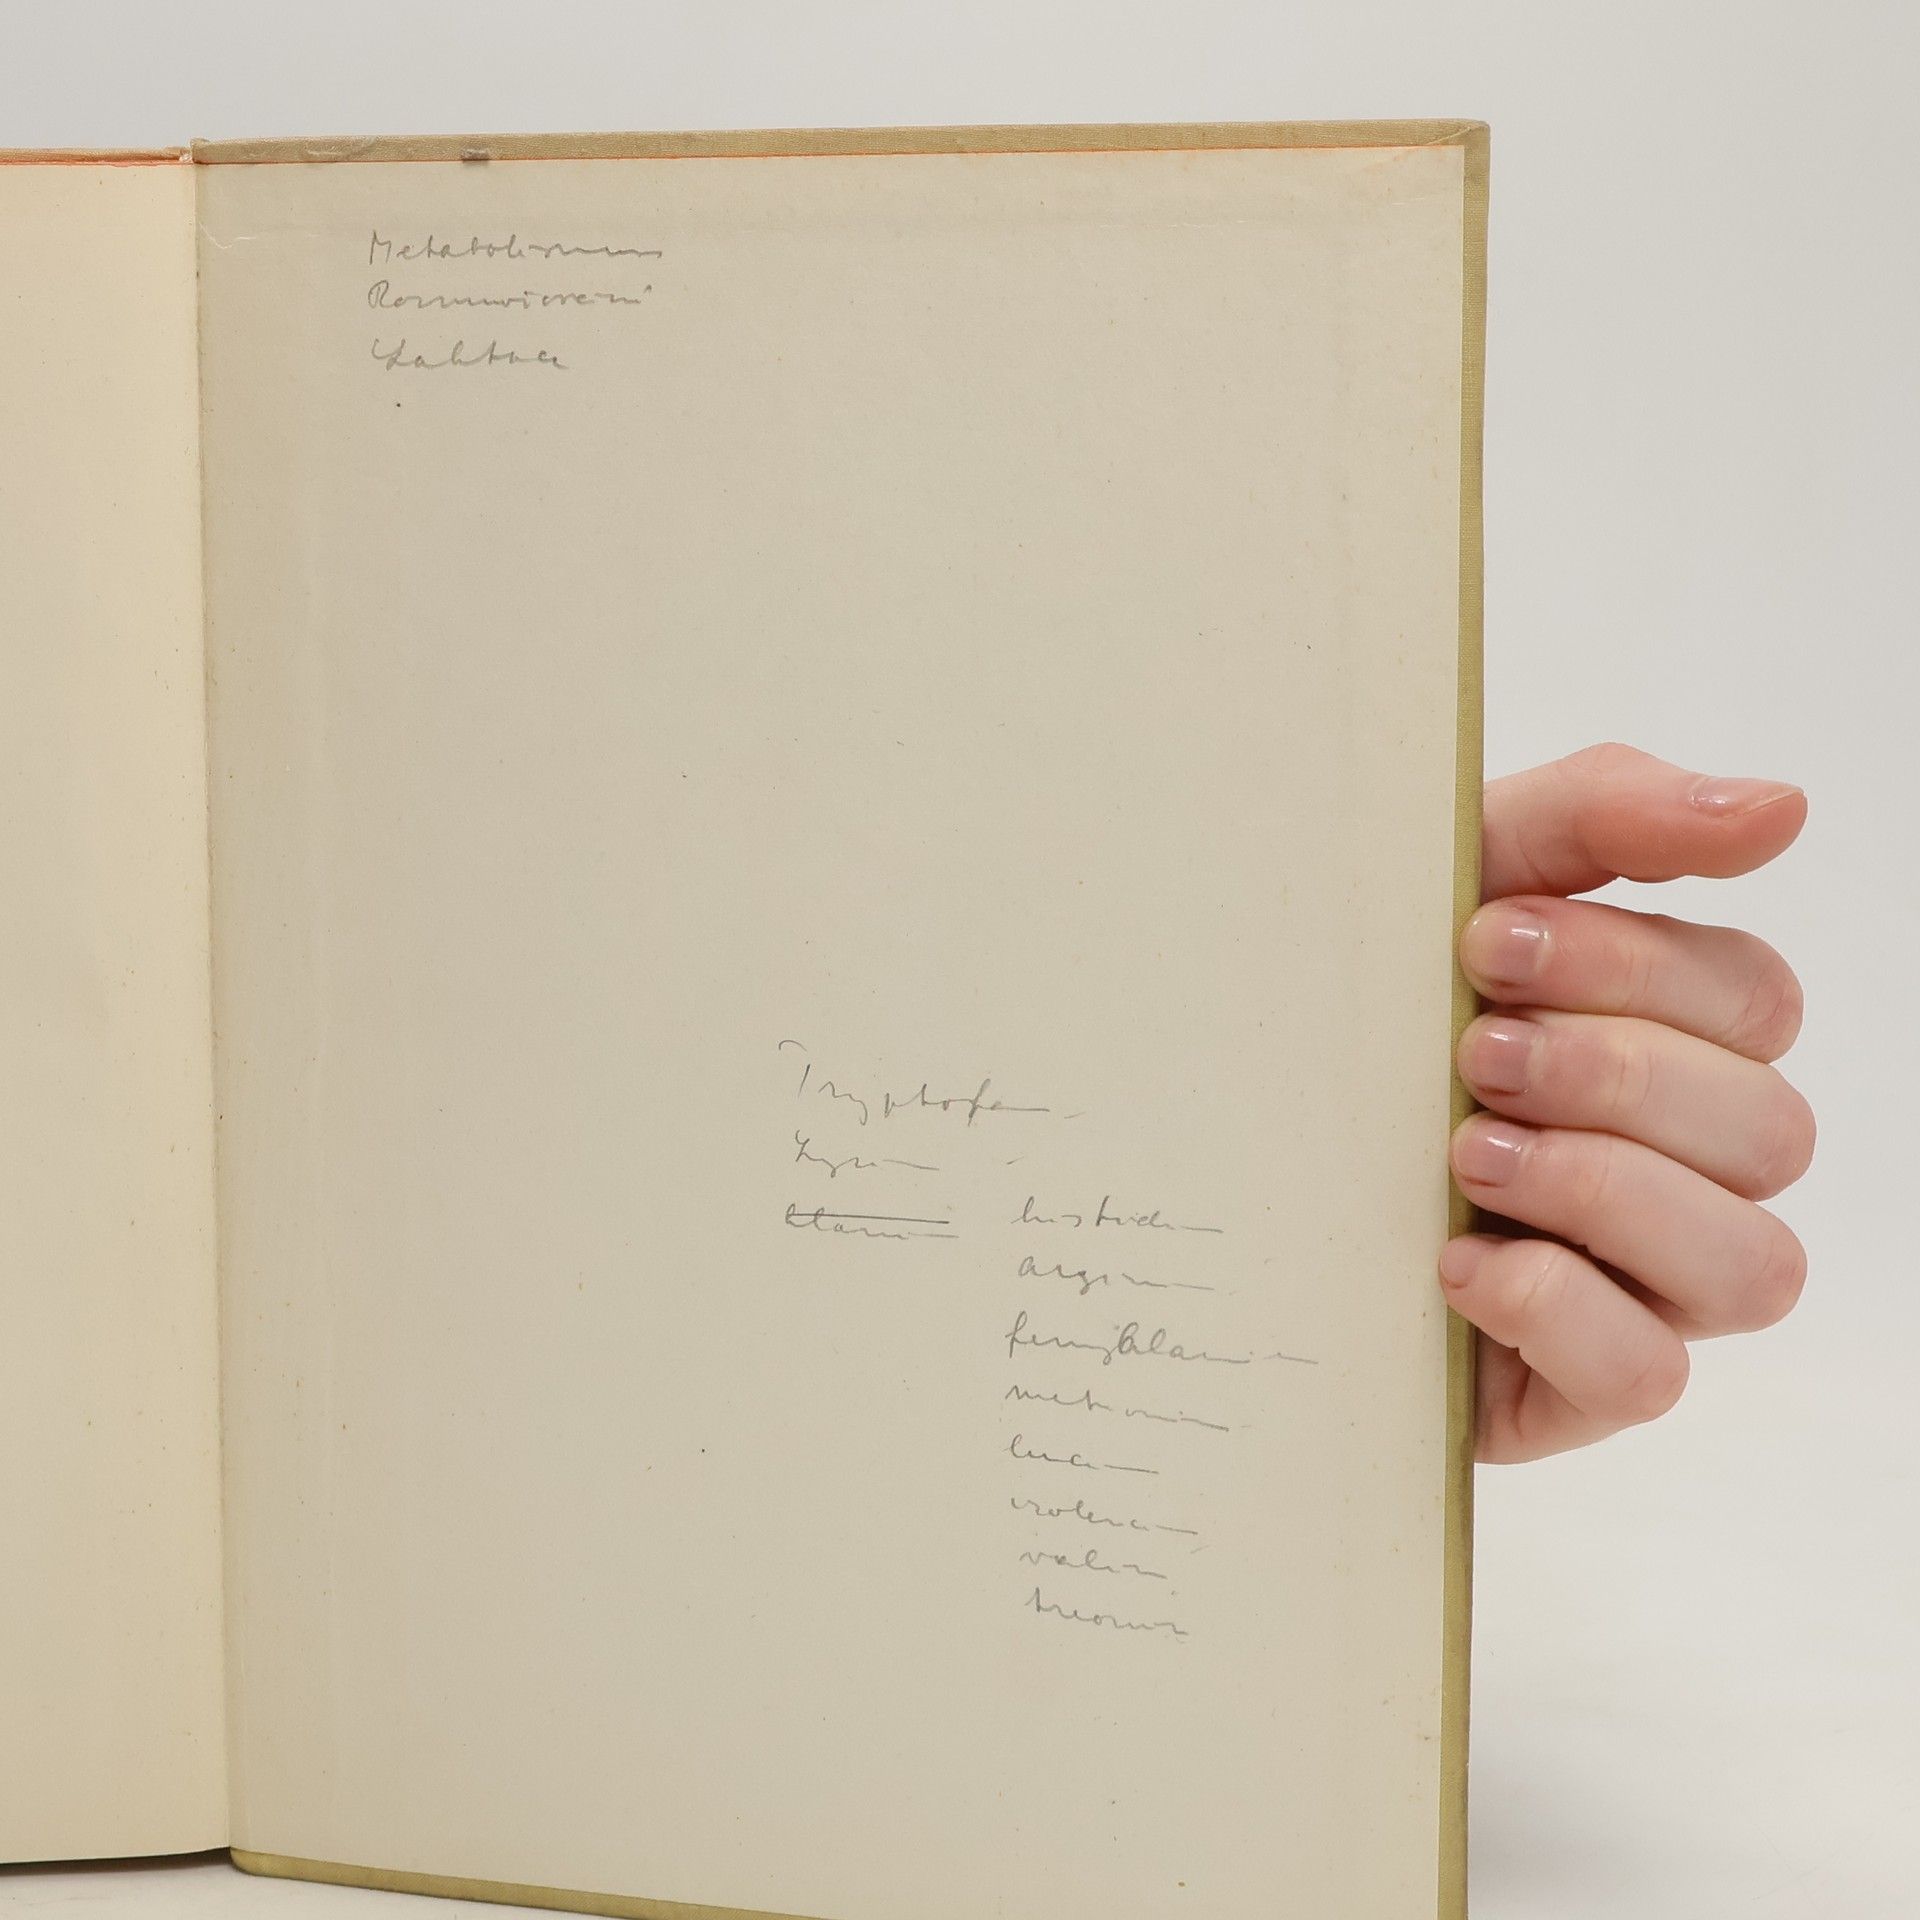 Metabolismus
Rozmnožování
Laktace
Tryptofan
Lysin
alanin
histidin
arginin
fenylalanin
metionin
leucin
isoleucin
valin
treonin